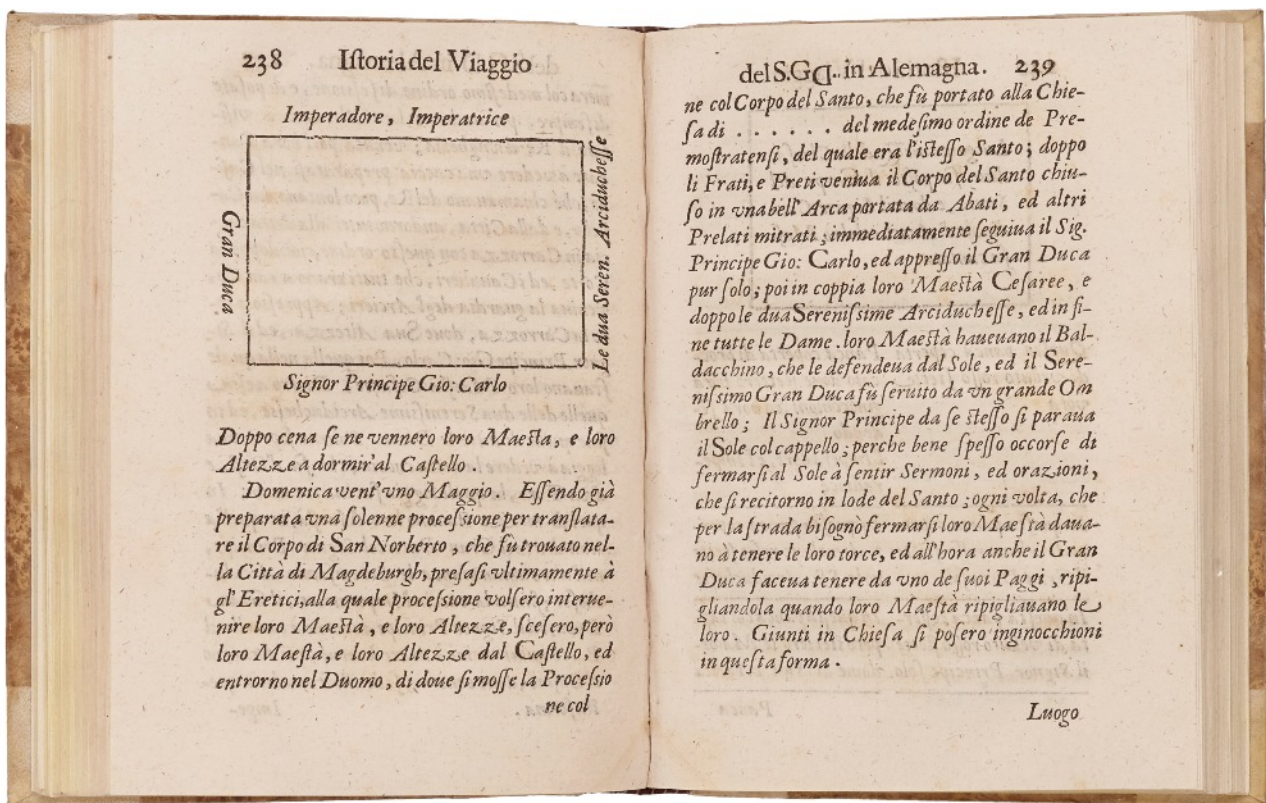 238 Iſtoria del Viaggio
Imperadore, Imperatrice
Gran Duca
Le dua Seren. Arciducheſſe
Signor Principe Gio: Carlo
Doppo cena ſe ne vennero loro Maeſta, e loro
Altezze a dormir'al Caſtello.
Domenica vent'vno Maggio. Eſſendo già
preparata vna ſolenne proceſſione per tranſlata-
re il Corpo di San Norberto, che fù trouato nel-
la Città di Magdeburgh, preſaſi vltimamente à
gl'Eretici, alla quale proceſſione volſero interue-
nire loro Maeſtà, e loro Altezze, ſceſero, però
loro Maeſtà, e loro Altezze dal Caſtello, ed
entrorno nel Duomo, di doue ſi moſſe la Proceſſio
ne col
del S.GD. in Alemagna. 239
ne col Corpo del Santo, che fù portato alla Chie-
ſa di . . . . . . del medeſimo ordine de Pre-
moſtratenſi, del quale era l'iſteſſo Santo; doppo
li Frati, e Preti veniua il Corpo del Santo chiu-
ſo in vna bell'Arca portata da Abati, ed altri
Prelati mitrati; immediatamente ſeguiua il Sig.
Principe Gio: Carlo, ed appreſſo il Gran Duca
pur ſolo; poi in coppia loro Maeſtà Ceſaree, e
doppo le dua Sereniſſime Arciducheſſe, ed in fi-
ne tutte le Dame. loro Maeſtà haueuano il Bal-
dacchino, che le defendeua dal Sole, ed il Sere-
niſſimo Gran Duca fù ſeruito da vn grande Om
brello; Il Signor Principe da ſe ſteſſo ſi paraua
il Sole col cappello; perche bene ſpeſſo occorſe di
fermarſi al Sole à ſentir Sermoni, ed orazioni,
che ſi recitorno in lode del Santo; ogni volta, che
per la ſtrada biſognò fermarſi loro Maeſtà daua-
no à tenere le loro torce, ed all'hora anche il Gran
Duca faceua tenere da vno de ſuoi Paggi, ripi-
gliandola quando loro Maeſtà ripigliauano le
loro. Giunti in Chieſa ſi poſero inginocchioni
in queſta forma.
Luogo